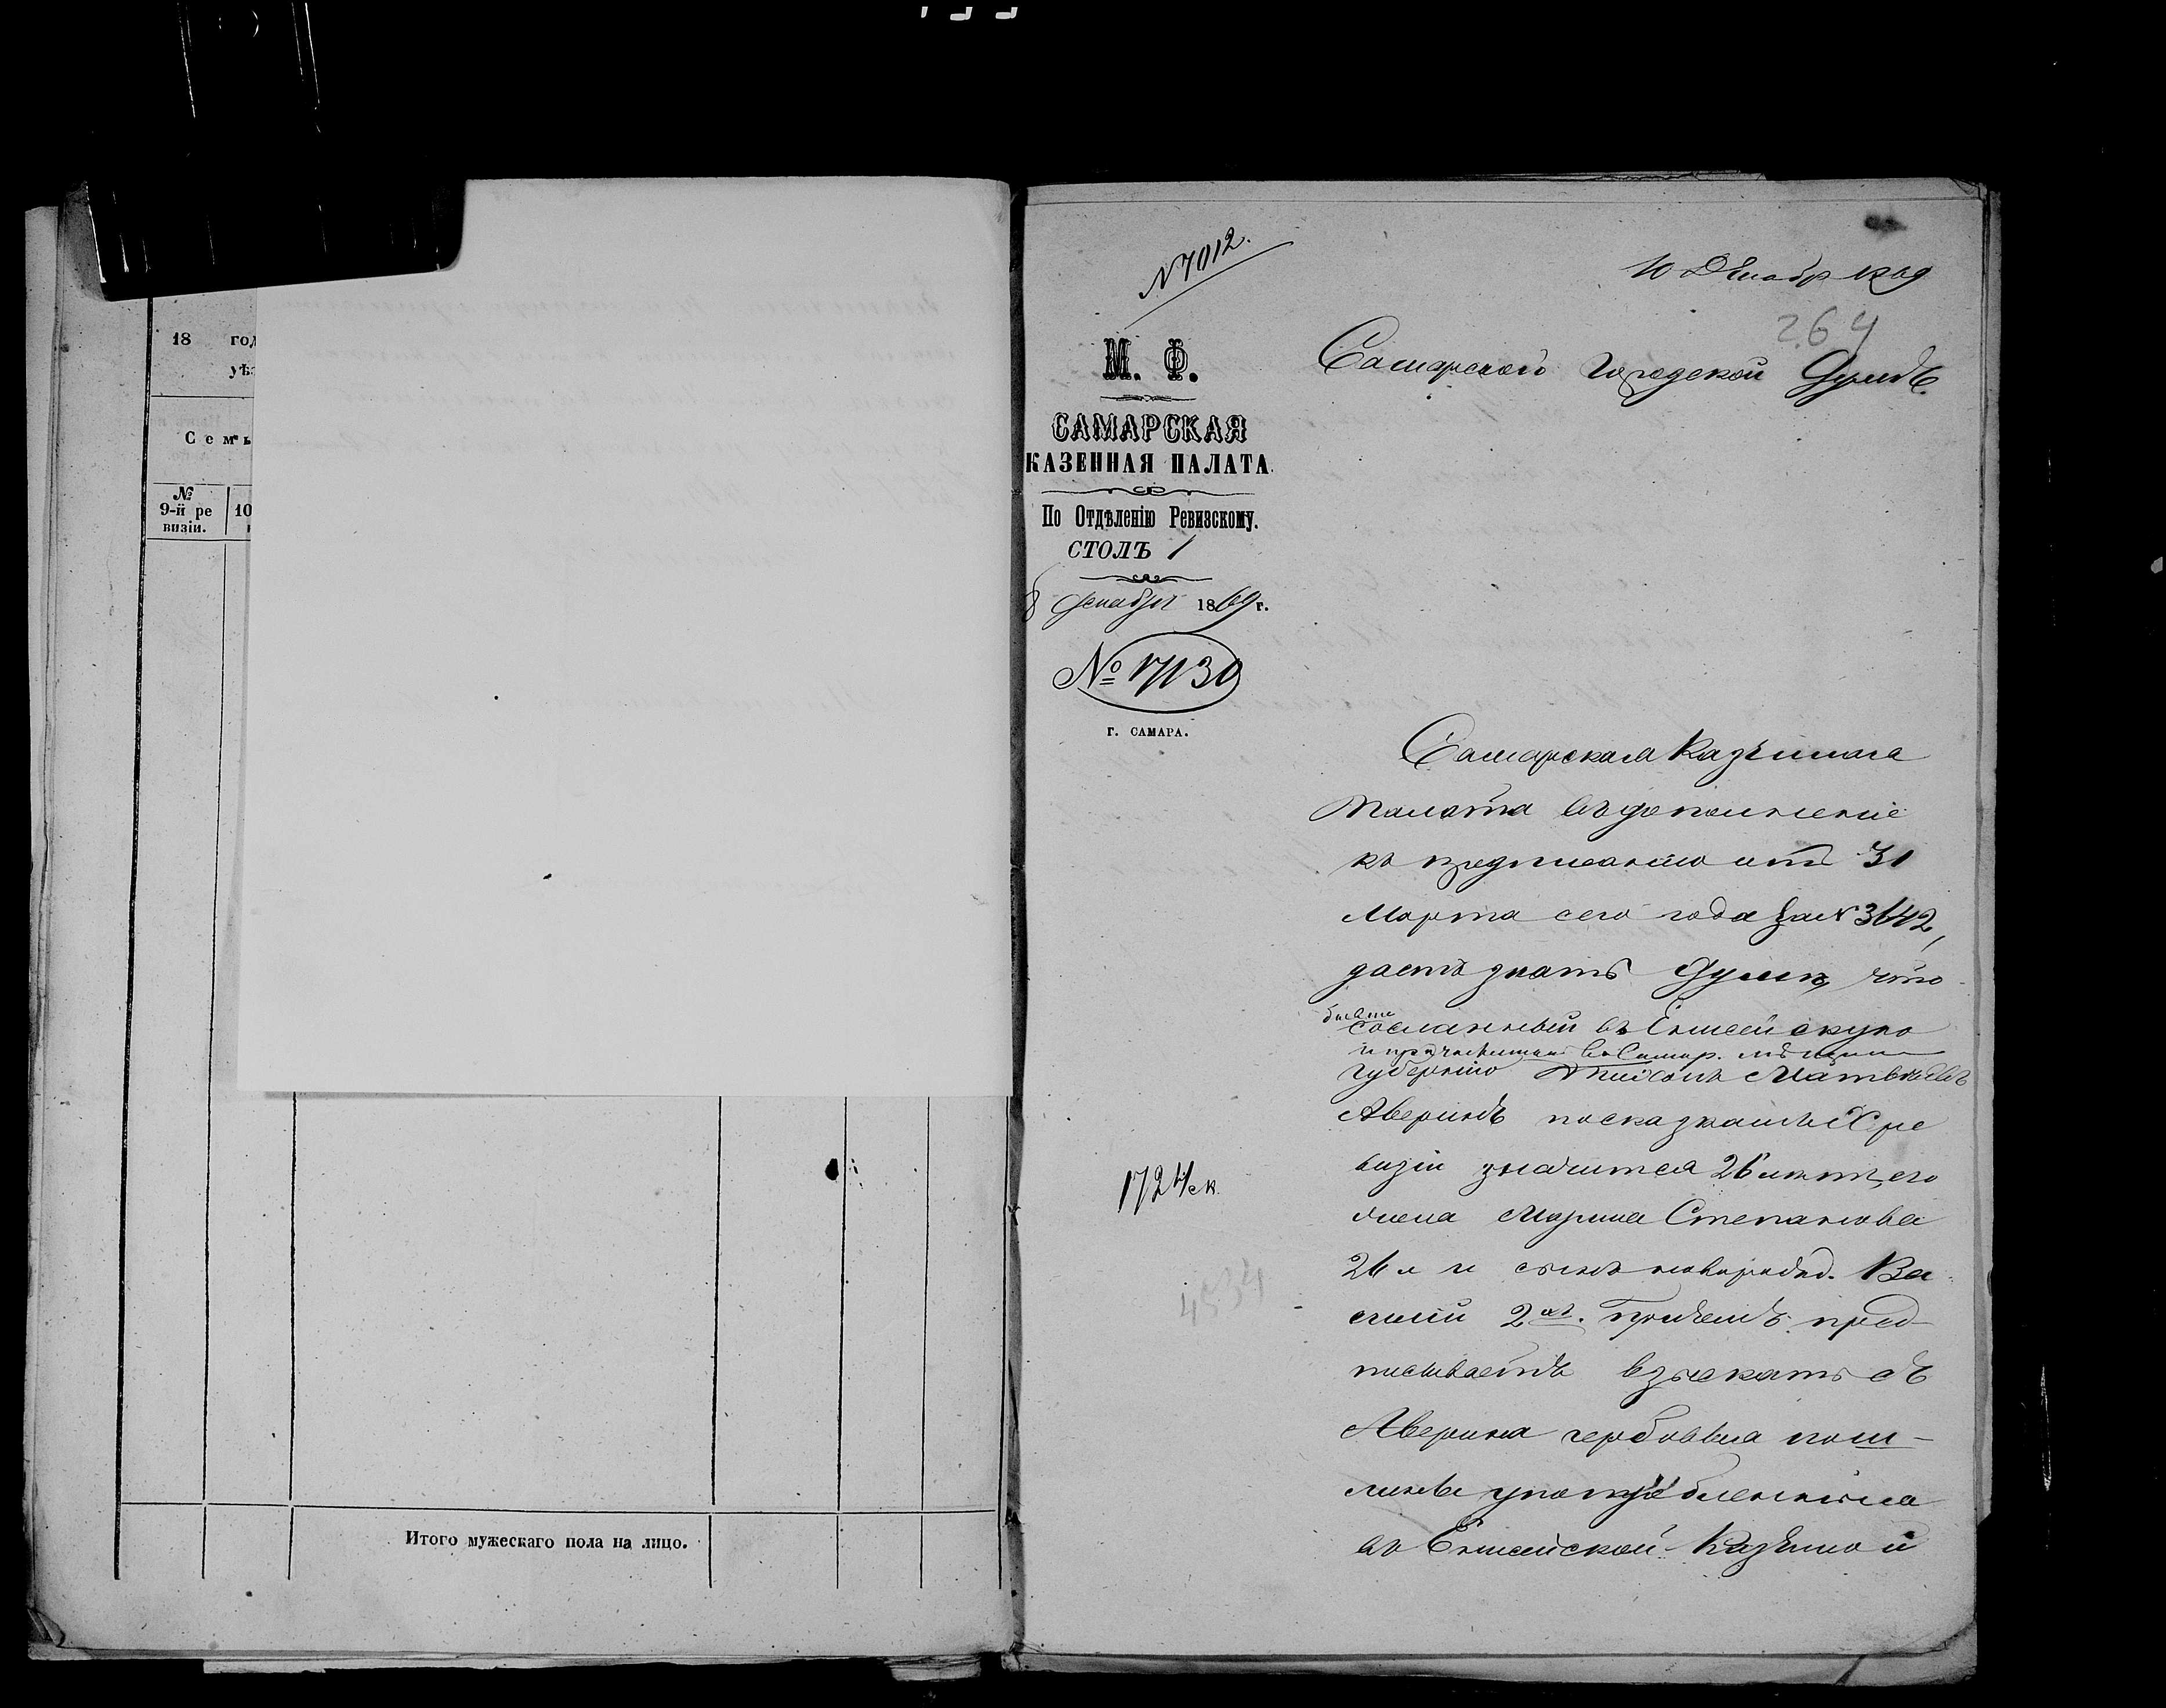 18 год
уѣз
Семь
№
9-й ре
визіи.
10
Итого мужескаго пола на лицо.
№ 7012.
10 Декабр 1869
264
М. Ф.
САМАРСКАЯ
КАЗЕННАЯ ПАЛАТА.
По Отдѣленію Ревизскому.
СТОЛЪ 1
8 Декабря 1869 г.
№ 17130
г. САМАРА.
Самарской Городской Думѣ.
Самарская Казенная
Палата въ дополненіе
къ предписанію отъ 31
Марта сего года за № 3642,
даетъ знать Думѣ, что
бывше
сосланный въ Енисейскую
и причисленный въ Самар. мѣщане
губернію Матвѣевъ
Аверинъ по сказкамъ X ре
визіи значится 26 лѣтъ, его
жена Марина Степанова
26 л и сынъ новорожд. Ва
силій 2 хъ. Причемъ пред
писываетъ взыскать съ
Аверина гербовыя пош-
лины употребленныя
въ Енисейской Казенной
172 4/ск.
4534